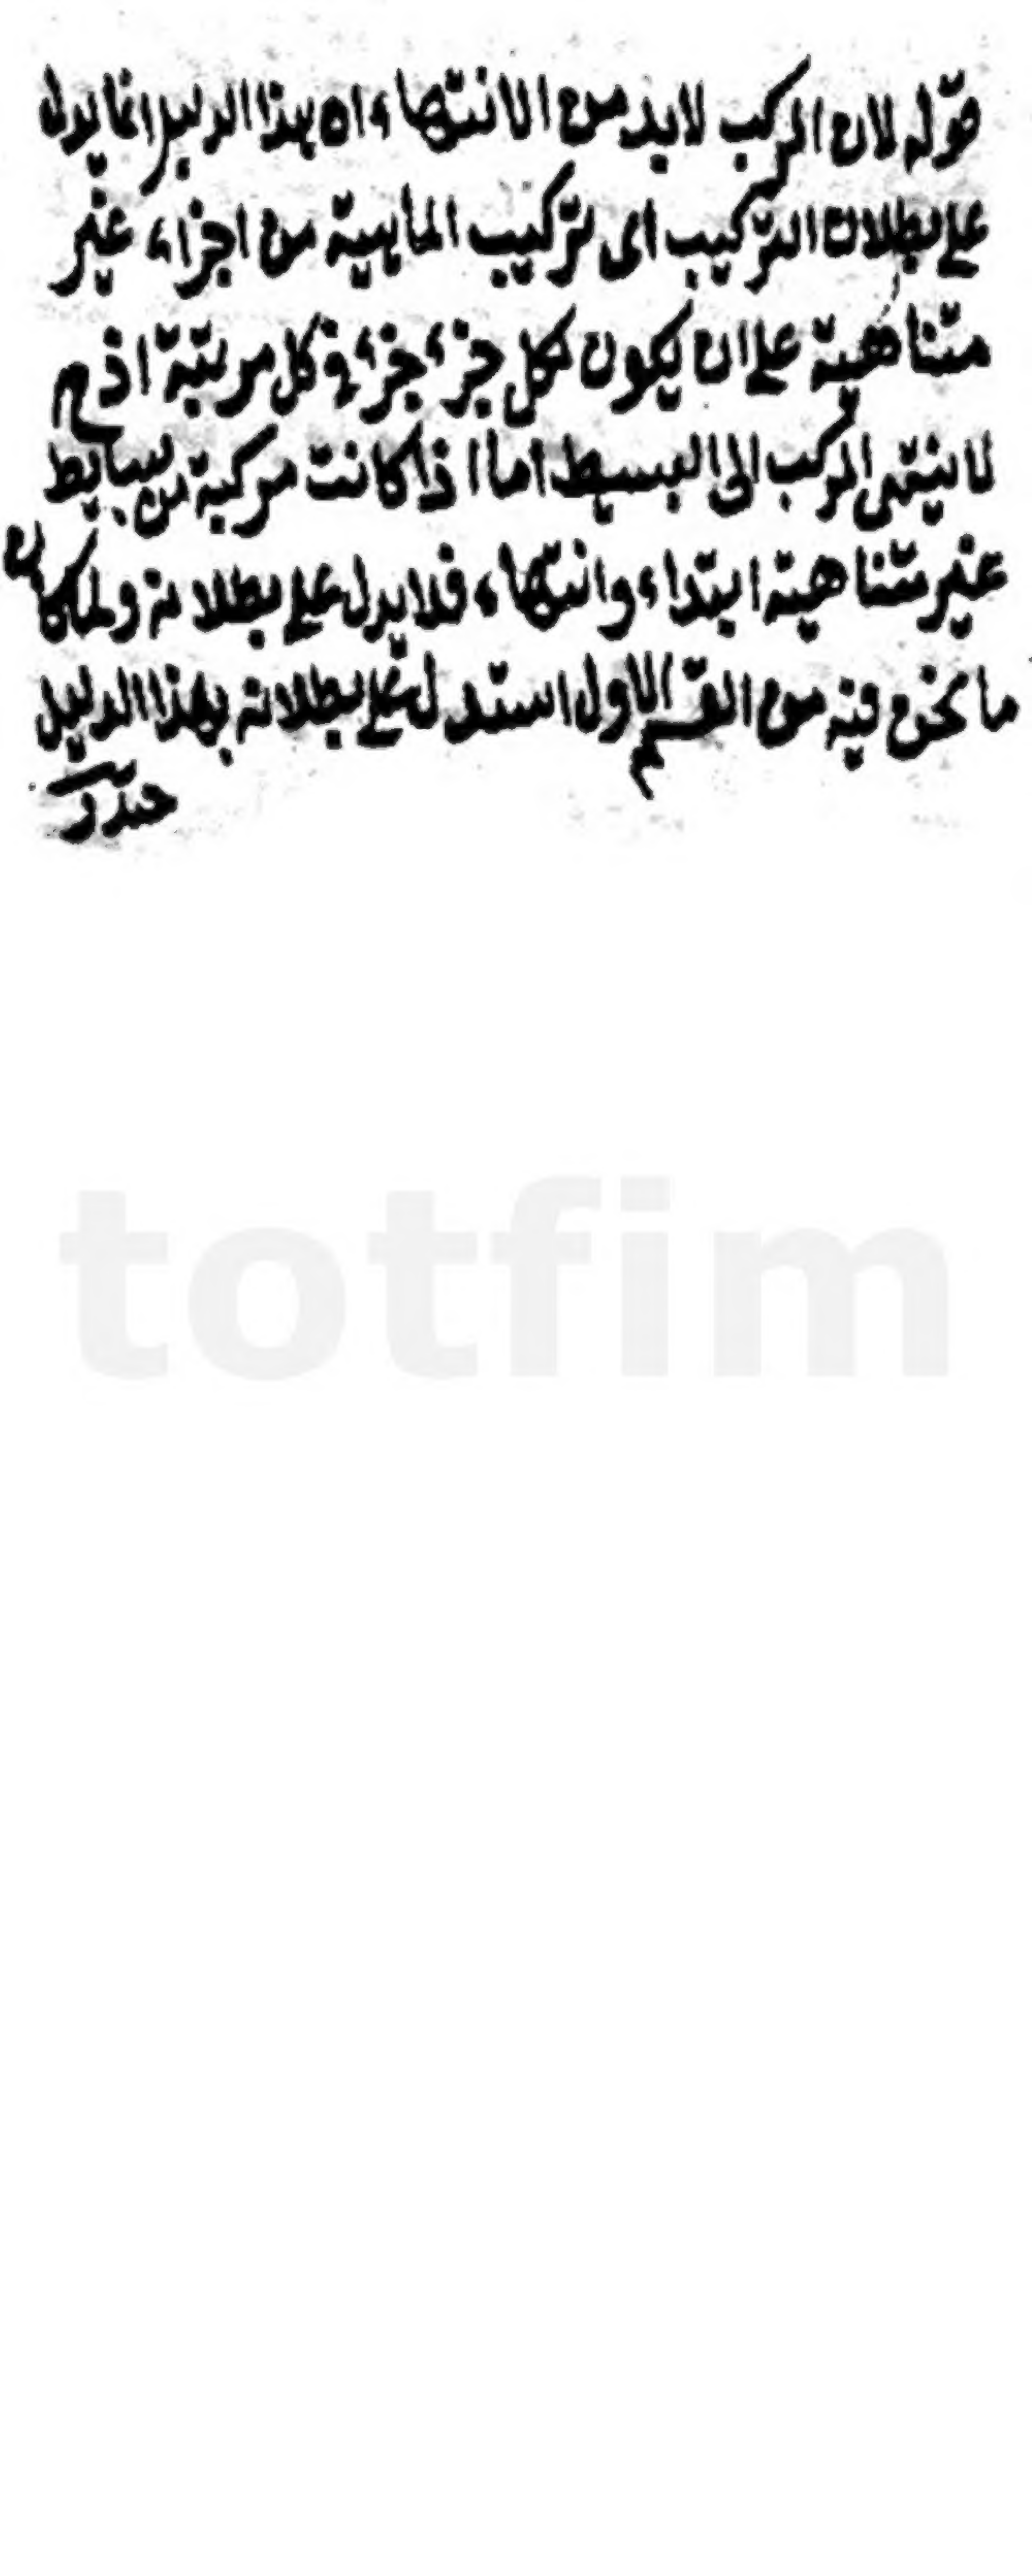 قوله لان المركب لابد من الانتهاء اه هذا الدليل انما يدل
على بطلان التركيب اى تركيب الماهية من اجزاء غير
متناهية على ان يكون لكل جزء جزء فى كل مرتبة اذ ح
لا ينتهى المركب الى البسيط اما اذا كانت مركبة من بسايط
غير متناهية ابتداء وانتهاء فلا يدل على بطلانه ولما كان
ما نحن فيه من القسم الاول استدل على بطلانه بهذا الدليل
totfim